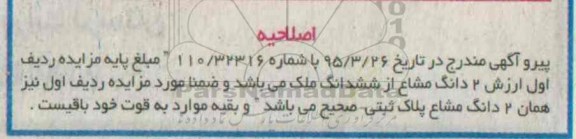 اصلاحیه
پیرو آگهی مندرج در تاریخ ۹۵/۳/۲۶ با شماره ۱۱۰/۳۲۳۱۶ " مبلغ پایه مزایده ردیف
اول ارزش ۲ دانگ مشاع از ششدانگ ملک می باشد و ضمنا مورد مزایده ردیف اول نیز
همان ۲ دانگ مشاع پلاک ثبتی، صحیح می باشد و بقیه موارد به قوت خود باقیست .